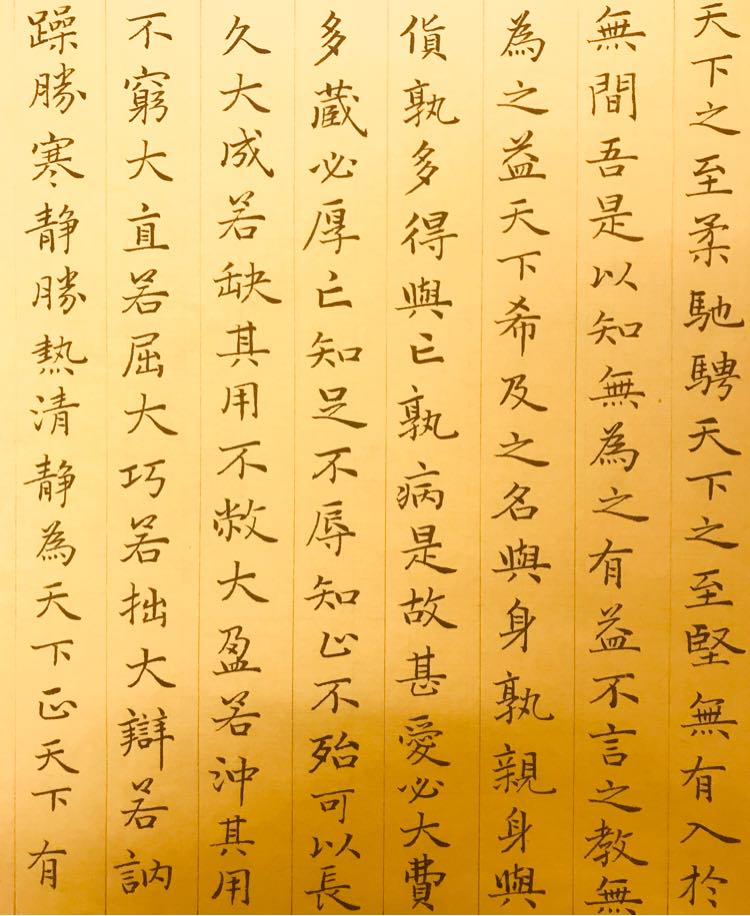 天下之至柔馳騁天下之至堅無有入於
無間吾是以知無為之有益不言之教無
為之益天下希及之名與身孰親身與
貨孰多得與亡孰病是故甚愛必大費
多蔵必厚亡知足不辱知止不殆可以長
久大成若缺其用不敝大盈若沖其用
不窮大直若屈大巧若拙大辯若訥
躁勝寒静勝熱清静為天下正天下有